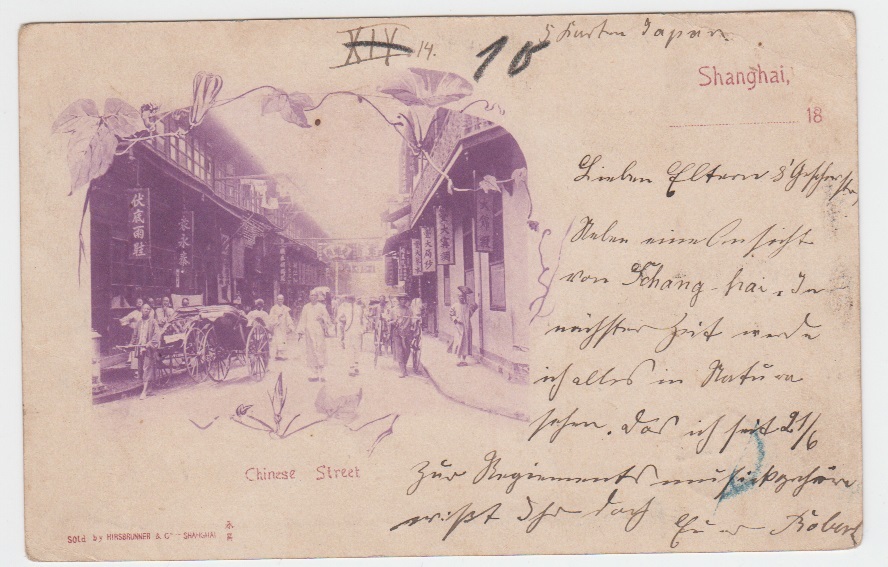 XIV 14. 10
5 Karten Japan
Shanghai,
18
Lieben Eltern &
eine Ansicht
von Schang-hai. In
nächster Zeit werde
ich alles in Natura
sehen. Das ich seit 21/6
Zur Regiments
wißt Ihr doch
Euer Robert
伏底雨鞋
Chinese Street
Sold by HIRSBRUNNER & Co - SHANGHAI